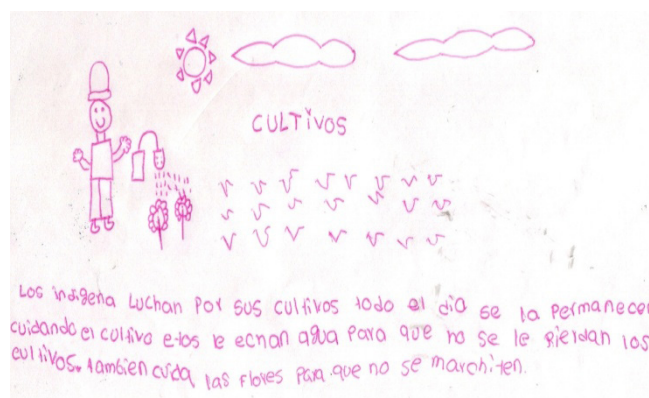 CULTIVOS
Los indigena Luchan Por sus cultivos todo el dia se la permanecen
cuidando el cultivo e-los le echan agua Para que no se le Pierdan los
cultivos. tambien cuida las flores Para que no se marchi-en.